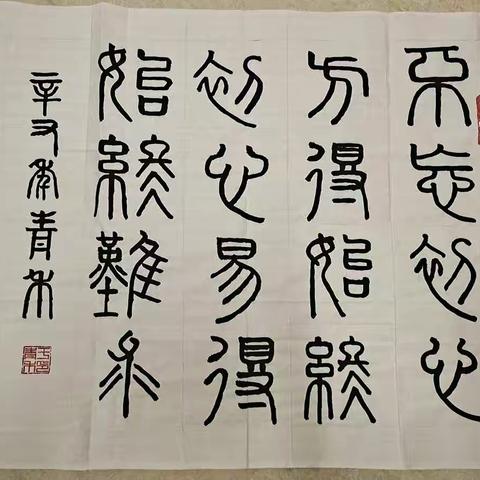 不忘初心
方得始終
初心易得
始終難
辛丑年青